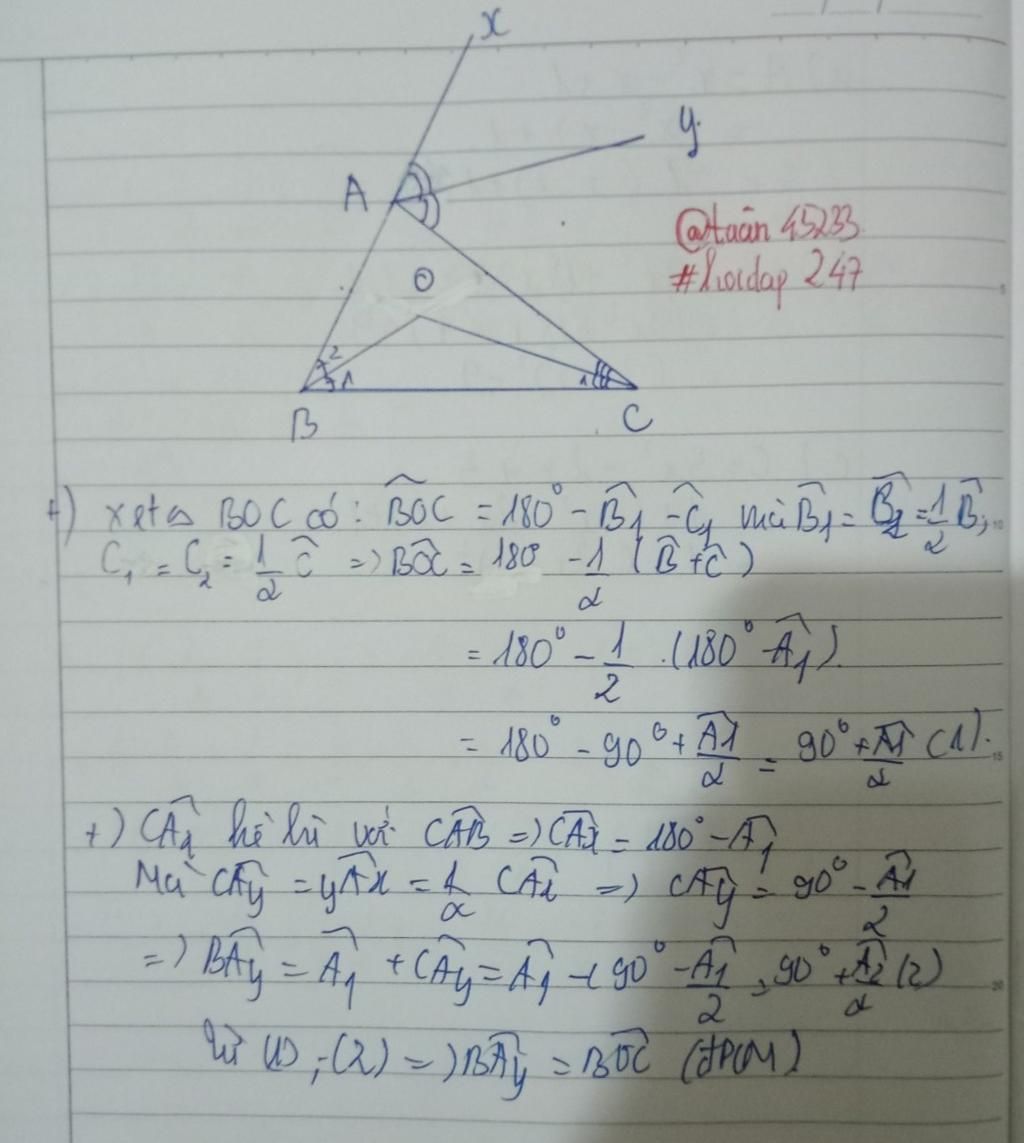 x
y
A
@tuân 45233
#hoidap 247
O
2
1
1
B
C
+) xét Δ BOC có: BOC = 180° - B1 - C1 mà B1 = B2 = 1/2 B,
C1 = C2 = 1/2 C => BOC = 180° - 1/2 (B + C)
= 180° - 1/2 . (180° - A1).
= 180° - 90° + A1/2 = 90° + A1/2 (1).
+) CAx kề bù với CAB => CAx = 180° - A1
Mà CAy = yAx = 1/2 CAx => CAy = 90° - A1/2
=> BAy = A1 + CAy = A1 + 90° - A1/2 = 90° + A2/2 (2)
từ (1) ; (2) => BAy = BOC (đPCM)